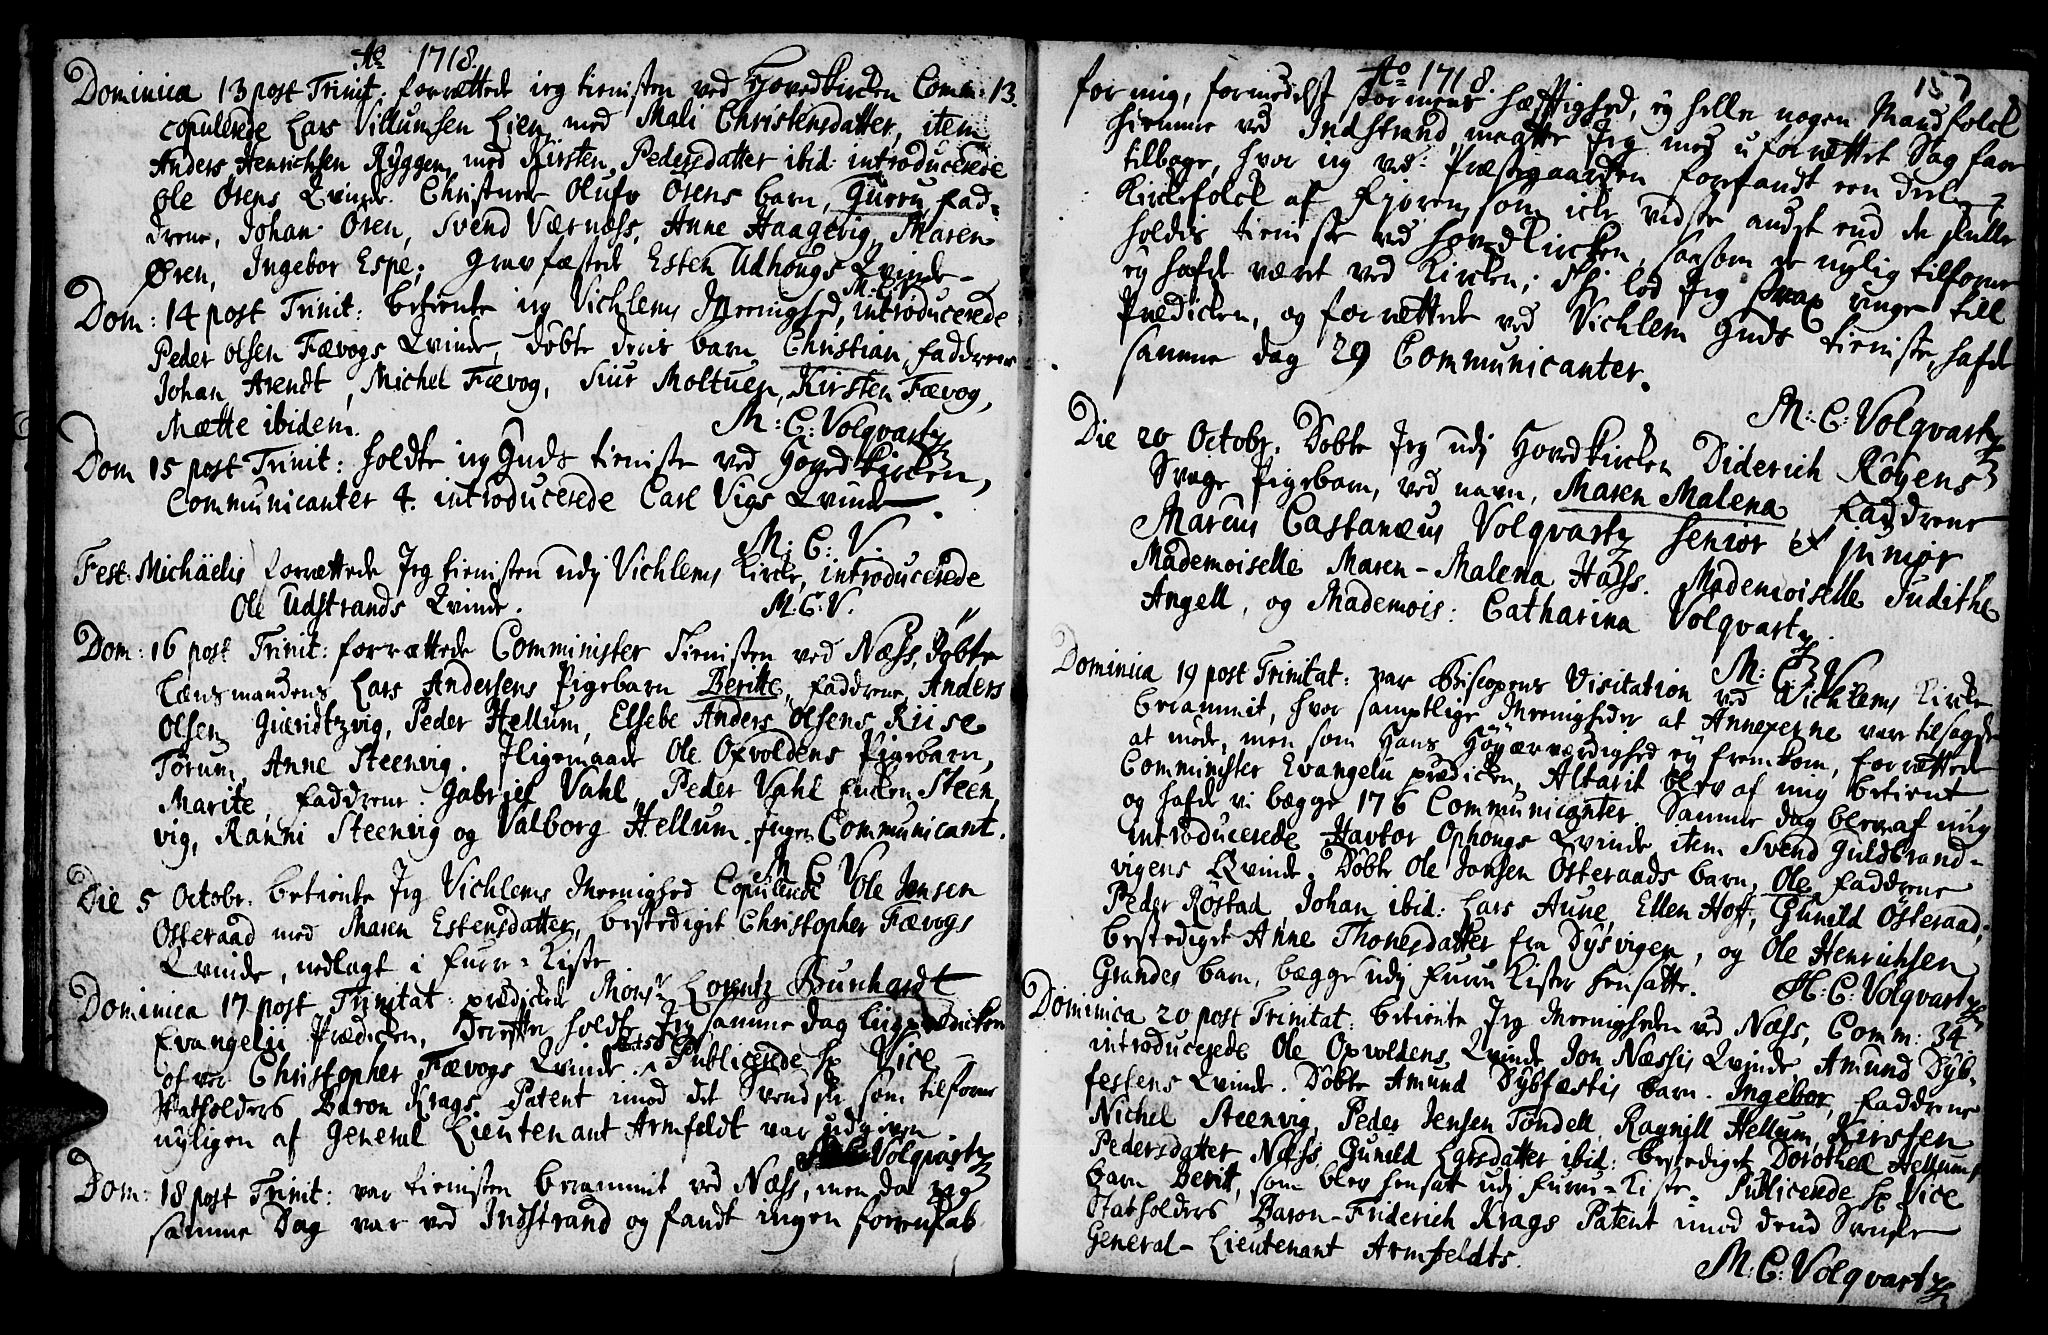 Ao 1718.
Dominica 13 post Trinit: forrettede ieg tienisten ved Hovedkircken Comm: 13.
copulerede Lars Villumsen Lien med Mali Christensdatter, item
Anders Henrichsen Ryggen med Kirsten Pedersdatter ibid: introducerede
Ole Ørens Qvinde. Christnede Oluf Ørens barn, Gurru, fad-
drene, Johan Ören, Svend Værnæss, Anne Haagevig, Maren
Øren, Ingebor Espe; Gravfæstede Esten Udhougs Qvinde
M:C:V:
Dom: 14 post Trinit: betiente ieg Vichlems Meenighed, introducerede
Peder Olsen Fævogs Qvinde, døbte deris barn Christian, faddrene
Johan Arendt, Michel Fævog, Siur Moltuen, Kirsten Fævog,
Mætte ibidem.
M: C: Volqvartz
Dom 15 post Trinit: holdte ieg Guds tieniste ved Hovedkircken,
Communicanter 4. introducerede Carl Vigs Qvinde.
M: C: V.
Fest: Michäelis forrættede Jeg tienisten udj Vichlems Kircke, introducerede
Ole Udstrands Qvinde. M.C.V.
Dom: 16 post Trinit: forrættede Comminister Tienisten ved Næss, Døbte
Lænsmandens Lars Andersens Pigebarn Beritte, faddrene, Anders
Olsen Gueridtzvig, Peder Hellum, Elsebe Anders Olsens Riise
Torum, Anne Steenvig. Iligemaade Ole Opvoldens Pigebarn,
Marite, faddrene. Gabriel Vahl, Peder Vahl Encken Steen
vig, Ranni Steenvig og Valborg Hellum. Ingen Communicant.
M C V
Die 5 Octobr. betiente Jeg Vichlems Meenighed Copulerede Ole Jensen
Osteraad med Maren Estensdatter, bestediget Christopher Fævogs
Qvinde, nedlagt i furre-Kiste
Dominica 17 post Trinitat: prædickede Monsr Lorentz Burchardt
Evangelii Prædicken, Derefter holdte Jeg samme dag liigprædicken
over Christopher Fævogs Qvinde. Publicerede hr Vice
Statholders Baron Krags Patent imod det Svendske som tilforne
nyligen af General Lieutenant Armfeldt var udgiven
Volqvartz
Dom: 18 post Trinit: var tienisten berammit ved Næss, men da jeg
samme Dag var ved Indstrand og fandt ingen forenskab
Ao 1718.
157
for mig, formedelst stormens hæfftighed, ey heller nogen Mandfolck
hiemme ved Indstrand, maatte Jeg med uforrettet Sag fare
tilbage, hvor ieg ved Præstegaarden forfandt een deel
Kirckefolck af Fjoren som icke vidste andet end de skulle
holdis tieniste ved Hovedkircken, saasom de nylig tilforne
ey hafde været ved Kircken; Thi lod Jeg strax ringe till
Prædicken, og forrettede ved Vichlem Guds tieniste, hafde
samme dag 29 Communicanter.
M: C: Volqvartz
Die 20 Octobr. Døbte Jeg udj Hovedkircken Diderich Röyens
Svage Pigebarn, ved navn, Maren Malena, Faddrene
Marcus Castanæus Volqvartz senior et junior
Mademoiselle Maren-Malena Hass. Mademoiselle Judithe
Angell, og Mademois: Catharina Volqvartz.
M: C: V
Dominica 19 post Trinitat: var Biscopens Visitation ved Vichlems Kircke
berammit, hvor samptlige Meenigheder at Annexerne vare tilsagde
at möde, men som Hans Höyærværdighed ey fremkom, forrættede
Comminister Evangelii prædicken, Altarit blev af mig betient
og hafde vi bægge 176 Communicanter. Samme dag blev af mig
introducerede Havtor Ophougs Qvinde, item Svend Guldbrand-
vigens Qvinde. Döbte Ole Jonsen Osteraads barn, Ole, Faddrene
Peder Röstad, Johan ibid: Lars Aune, Ellen Hoff, Gunild Osteraad,
bestediget Anne Thonesdatter fra Dysvigen, og Ole Henrichsen
Grandes barn, bægge udj furru Kister hensatte. M: C: Volqvartz
Dominica 20 post Trinitat: betiente Jeg Meenigheden ved Næss, Comm: 34
introducerede Ole Opvoldens Qvinde Jon Næssis Qvinde, Amund Dyb-
festens Qvinde. Døbte Amund Dybfæstis barn. Ingebor, Faddrene
Nichel Steenvig, Peder Jensen Töndell, Ragnill Hellum, Kirsten
Pedersdatter Næss Gunild Larsdatter ibid: bestediget Dorothea Hellums
barn Berit, som blev hensatt udj furru-Kiste. Publicerede hr Vice
Statholders Baron-Friderich Krags Patent imod dend Svenske
General-Lieutenant Armfeldts.
M: C: Volqvartz